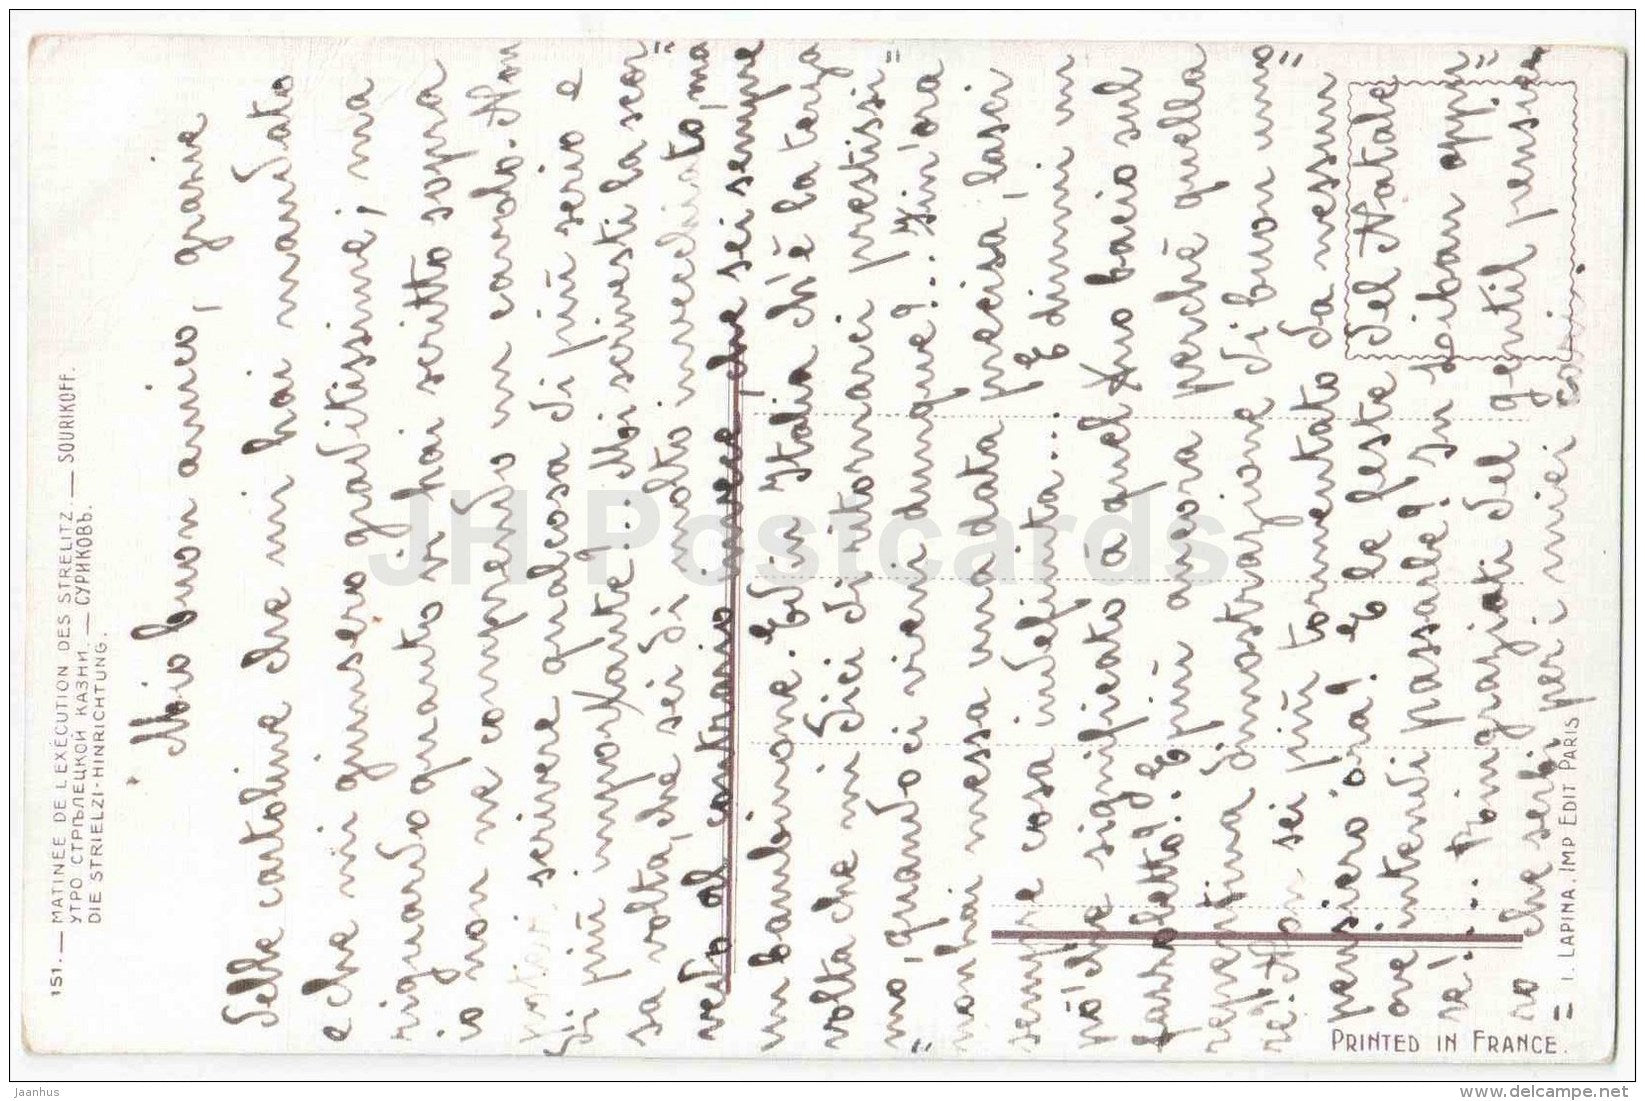 151. — MATINÉE DE L'EXÉCUTION DES STRELITZ. — SOURIKOFF.
УТРО СТРѢЛЕЦКОЙ КАЗНИ. — СУРИКОВЪ.
DIE STRIELZI-HINRICHTUNG.
Mio buon amico, grazie
delle cartoline che mi hai mandato
e che mi giunsero graditissime; ma
riguardo quanto vi hai scritto sopra
io non ne comprendo un cavolo. Non
potevi scrivere qualcosa di più serio e
di più importante?... Mi scrivesti la scor"
sa volta, che sei di molto invecchiato, ma
vedo al contrario invece che sei sempre
un bambinone. Ed in Italia ch'è la terza
volta che mi dici di ritornarci prestissi"
mo, quando ci vieni dunque?... Fin'ora
"non hai messa una data precisa, lasci
sempre cosa indefinita... E dimmi un
pò che significato à quel tuo bacio sul
fazzoletto?.. E più ancora perchè quella
repentina dimostrazione di buon umo"
re?. Non sei più tormentato da nessun
pensiero ora?. E le feste del Natale
ove intendi passarle? In Liban oppu"
re!... Ringraziati del gentil pensie"
ro che serbi per i miei cari.
PRINTED IN FRANCE.
I. LAPINA. IMP EDIT PARIS
JH Postcards
jaanhus
www.delcampe.net